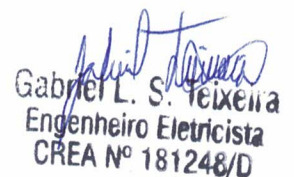 Gabriel L. S. Teixeira
Engenheiro Eletricista
CREA Nº 181248/D